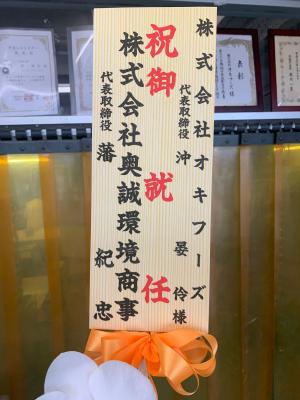 株式会社オキフーズ
代表取締役 沖 晏伶様
祝御就任
株式会社奥誠環境商事
代表取締役 藩 紀忠
表彰